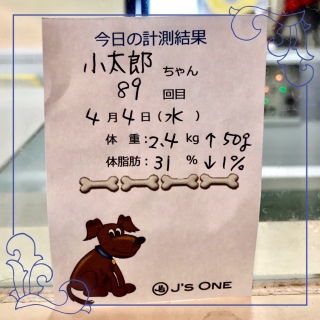 今日の計測結果
小太郎ちゃん
89回目
4月4日(水)
体重:2.4kg↑50g
体脂肪:31%↓1%
J'S ONE